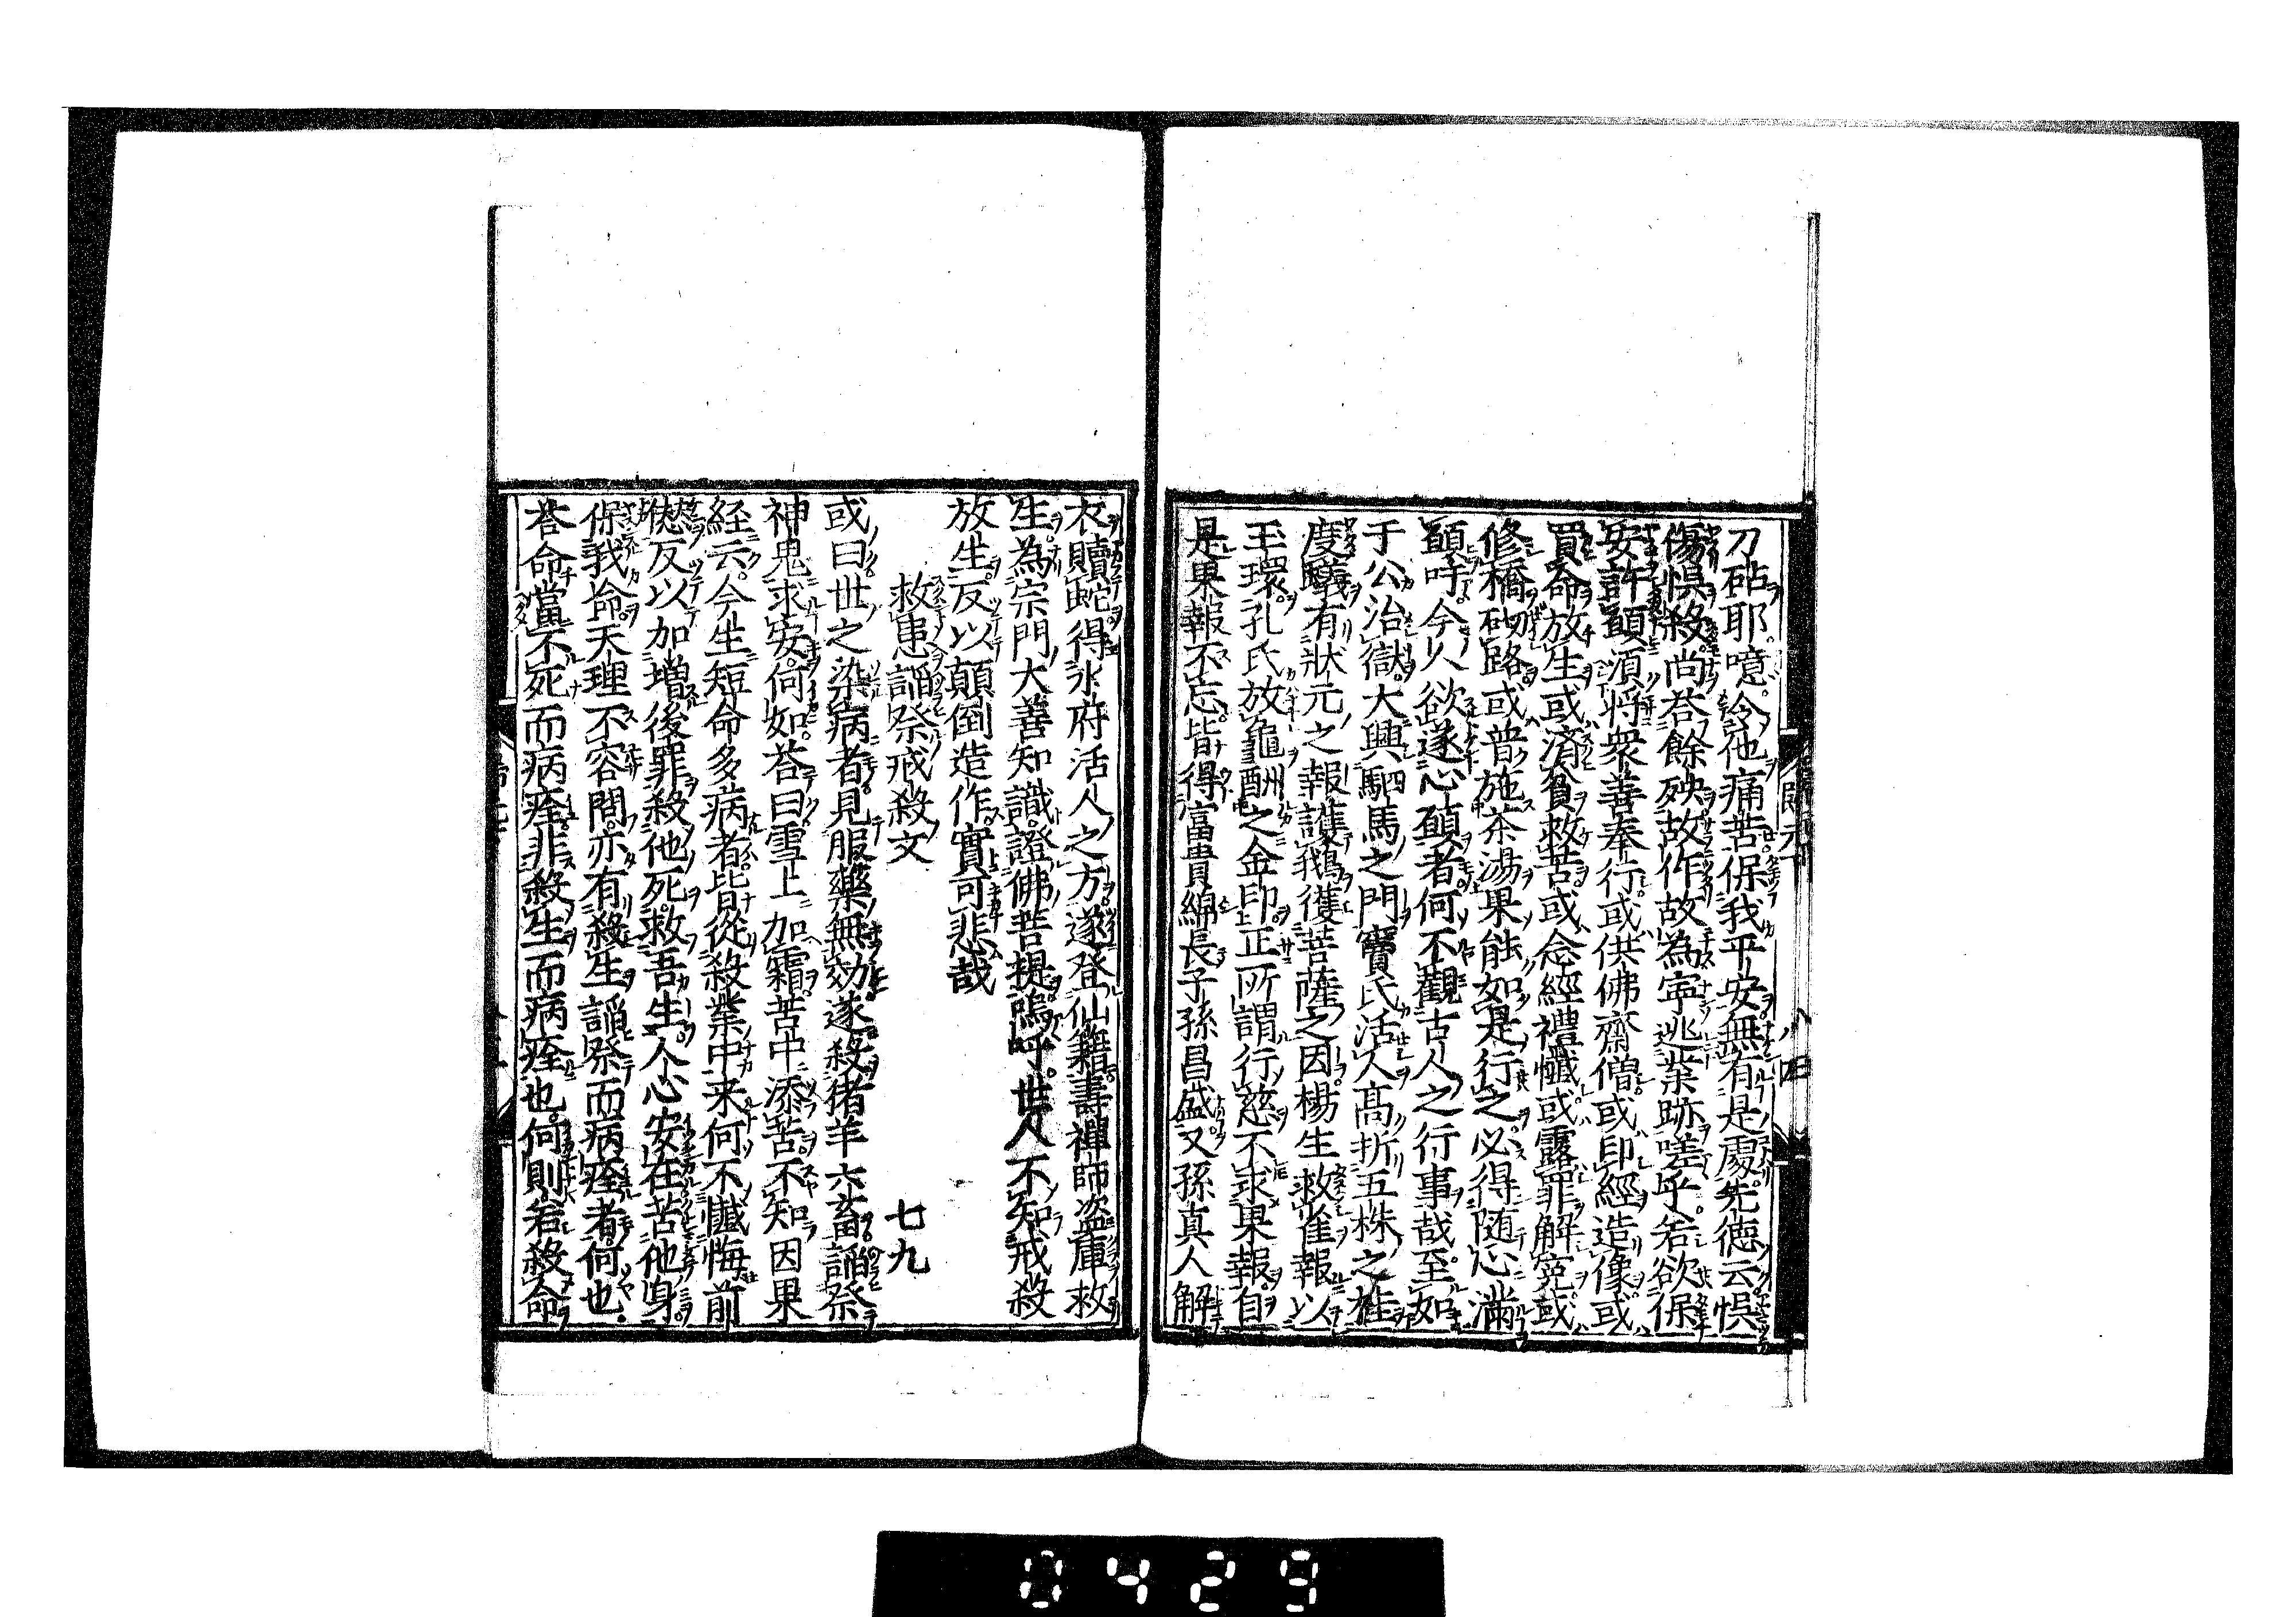 刀砧耶噫令他痛苦保我平安無有是處先德云悞
傷悞殺尚荅餘殃故作故為寧逃業跡嗟乎若欲保
安許願須將衆善奉行或供佛齋僧或印經造像或
買命放生或濟貧救苦或念經禮懺或露罪解寃或
修橋砌路或普施茶湯果能如是行之必得随心滿
願吁今人欲遂心願者何不觀古人之行事哉至如
于公治獄大興駟馬之門竇氏活人高折五株之桂
度蟻有狀元之報護鵝獲菩薩之因楊生救雀報以
玉環孔氏放龜酬之金印正所謂行慈不求果報自
是果報不忘皆得富貴綿長子孫昌盛又孫真人解
衣贖蛇得氷府活人之方遂登仙籍壽禪師盗庫救
生為宗門大善知識證佛菩提嗚呼世人不知戒殺
放生反以顛倒造作實可悲哉
救患謟祭戒殺文 七九
或曰世之染病者見服藥無効遂殺猪羊六畜謟祭
神鬼求安何如荅曰雪上加霜苦中添苦不知因果
経云今生短命多病者皆從殺業中来何不懺悔前
愆反以加増後罪殺他死救吾生人心安在苦他身
保我命天理不容間亦有殺生謟祭而病痊者何也
荅命當不死而病痊非殺生而病痊也何則若殺命
0429